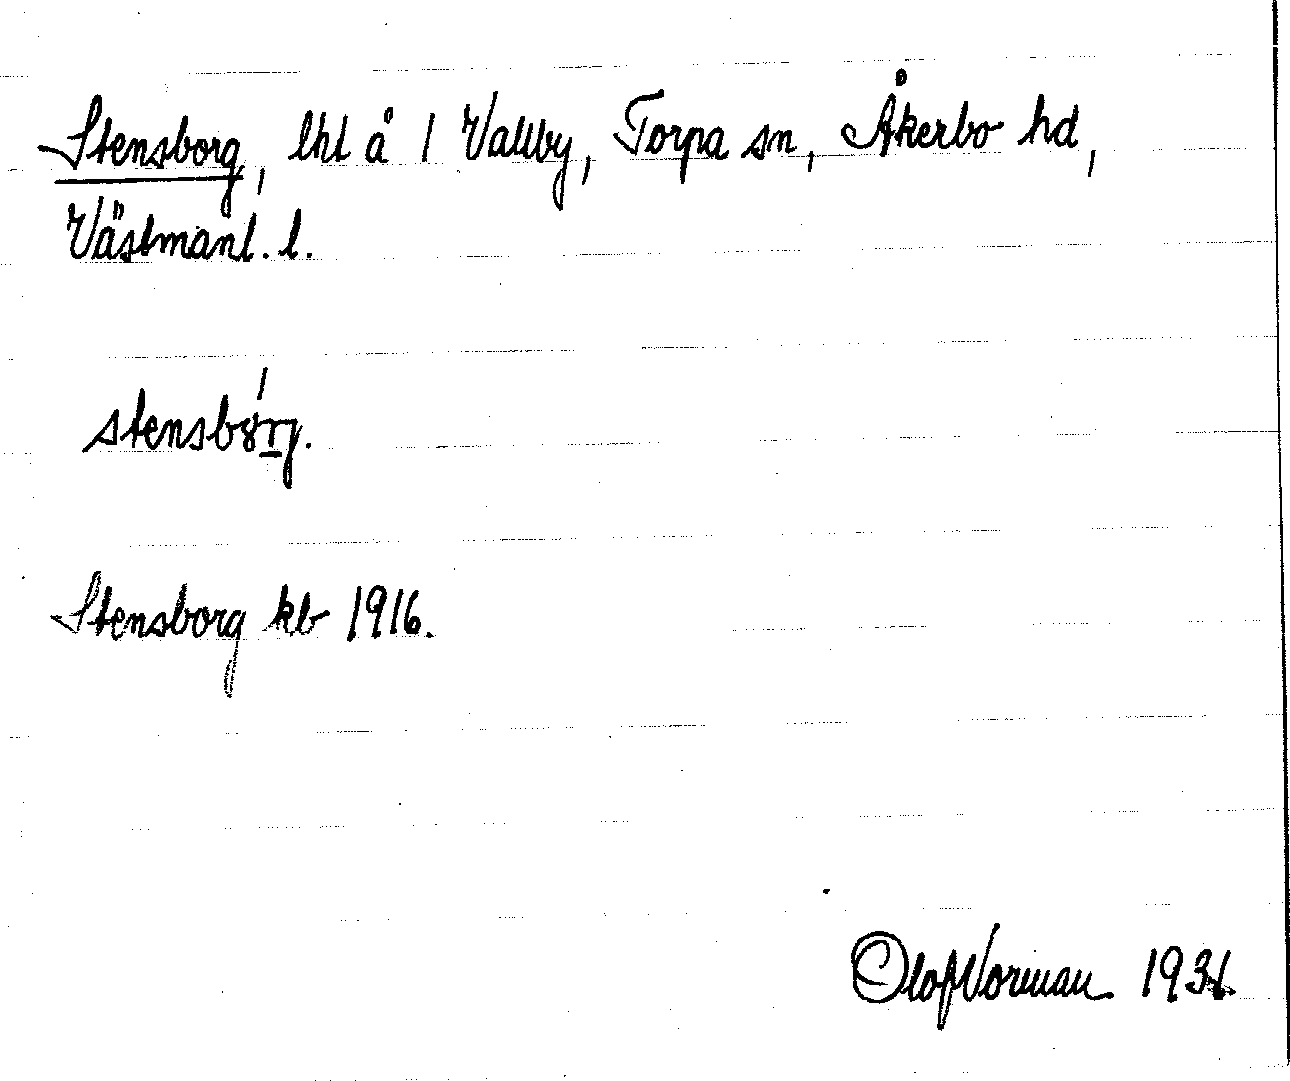 Stensborg, lht å 1 Vallby, Torpa sn, Åkerbo hd,
Västmanl. l.
stensbórj.
Stensborg kb 1916.
Olof Norman 1931